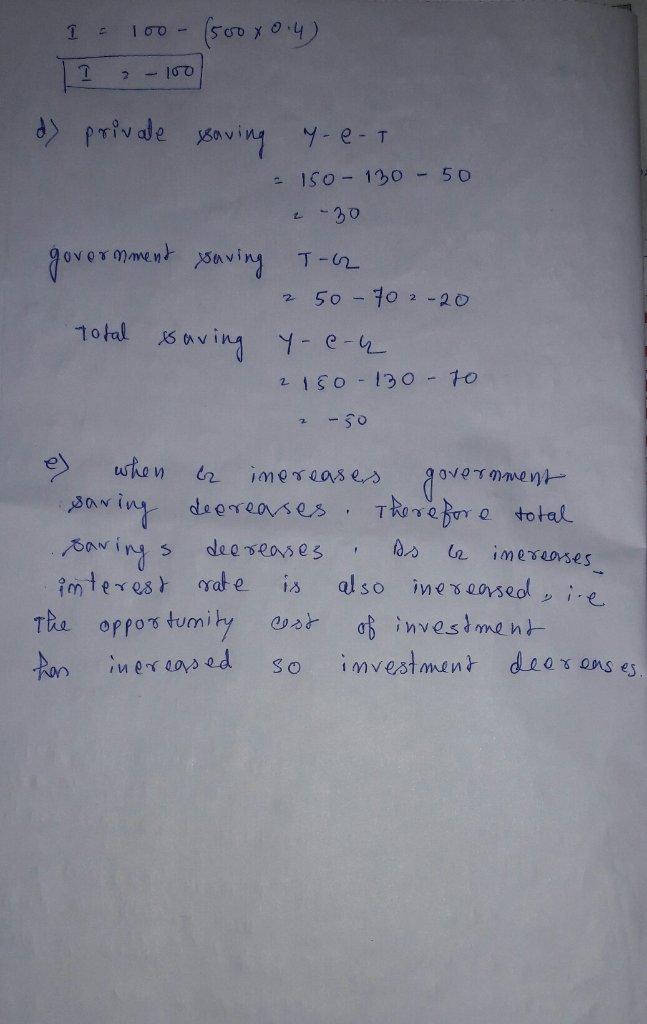 I = 100 - (500 x 0.4)
I = -100
d) private saving Y-C-T
= 150 - 130 - 50
= -30
government saving T-G
= 50 - 70 = -20
Total saving Y-C-G
= 150 - 130 - 70
= -50
e) when G increases government
saving decreases. Therefore total
savings decreases. As G increases
interest rate is also increased, i.e
The opportunity cost of investment
has increased so investment decreases.